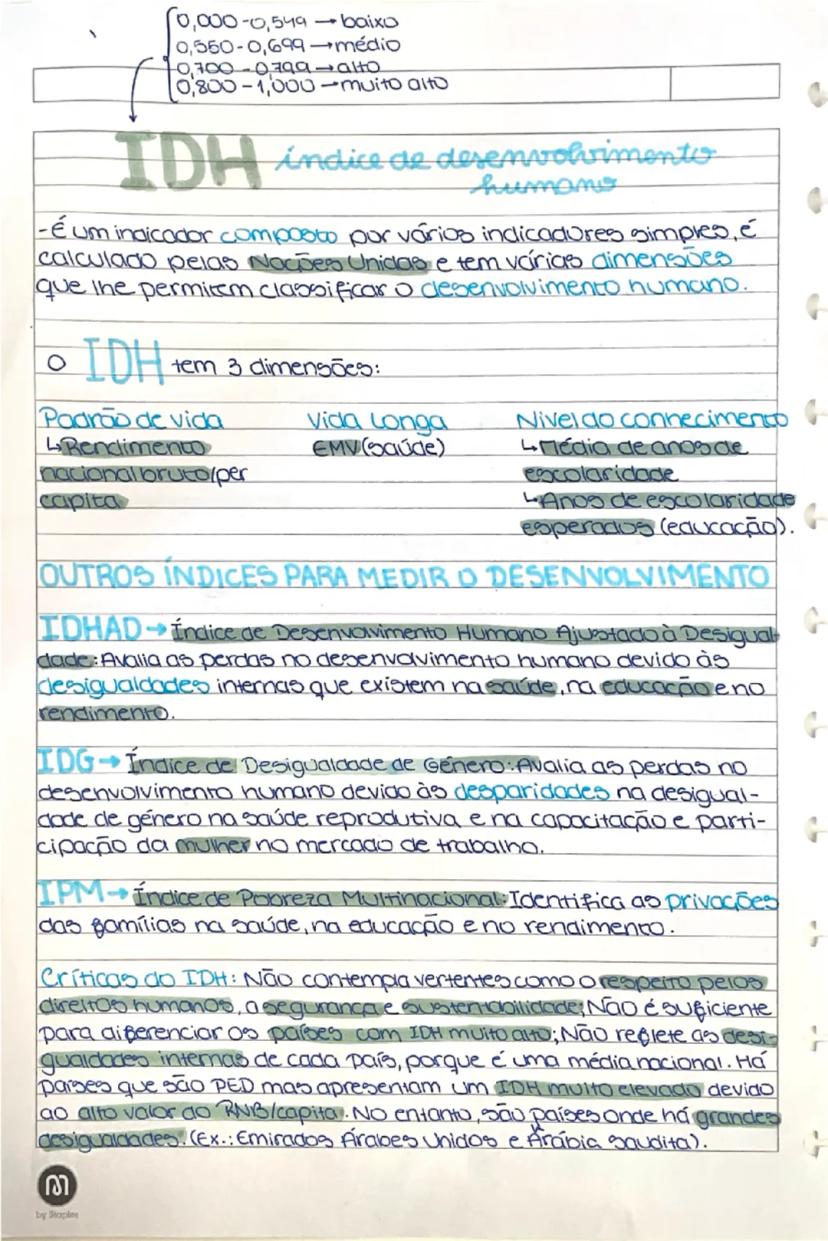 0,000-0,549 → baixo
0,550-0,699 → médio
0,700 - 0,799 → alto
0,800 - 1,000 → muito alto
IDH índice de desenvolvimento
humano
-É um indicador composto por vários indicadores simples, é
calculado pelas Nações Unidas e tem várias dimensões
que lhe permitem classificar o desenvolvimento humano.
O IDH tem 3 dimensões:
Padrão de vida Vida Longa Nivel do conhecimento
↳Rendimento EMV(saúde) ↳Média de anos de
nacional bruto/per escolaridade
capita ↳Anos de escolaridade
esperados (educação).
OUTROS ÍNDICES PARA MEDIR O DESENVOLVIMENTO
IDHAD→Índice de Desenvolvimento Humano Ajustado à Desigual
dade: Avalia as perdas no desenvolvimento humano devido às
desigualdades internas que existem na saúde, na educação e no
rendimento.
IDG→Índice de Desigualdade de Género: Avalia as perdas no
desenvolvimento humano devido às desparidades na desigual-
dade de género na saúde reprodutiva e na capacitação e parti-
cipação da mulher no mercado de trabalho.
IPM→Índice de Pobreza Multinacional: Identifica as privações
das famílias na saúde, na educação e no rendimento.
Críticas do IDH: Não contempla vertentes como o respeito pelos
direitos humanos, a segurança e sustentabilidade; Não é suficiente
para diferenciar os países com IDH muito alto; Não reflete as desi-
gualdades internas de cada país, porque é uma média nacional. Há
países que são PED mas apresentam um IDH muito elevado devido
ao alto valor do RNB/capita. No entanto, são países onde há grandes
desigualdades. (Ex.: Emirados Árabes Unidos e Arábia saudita).
by Staples